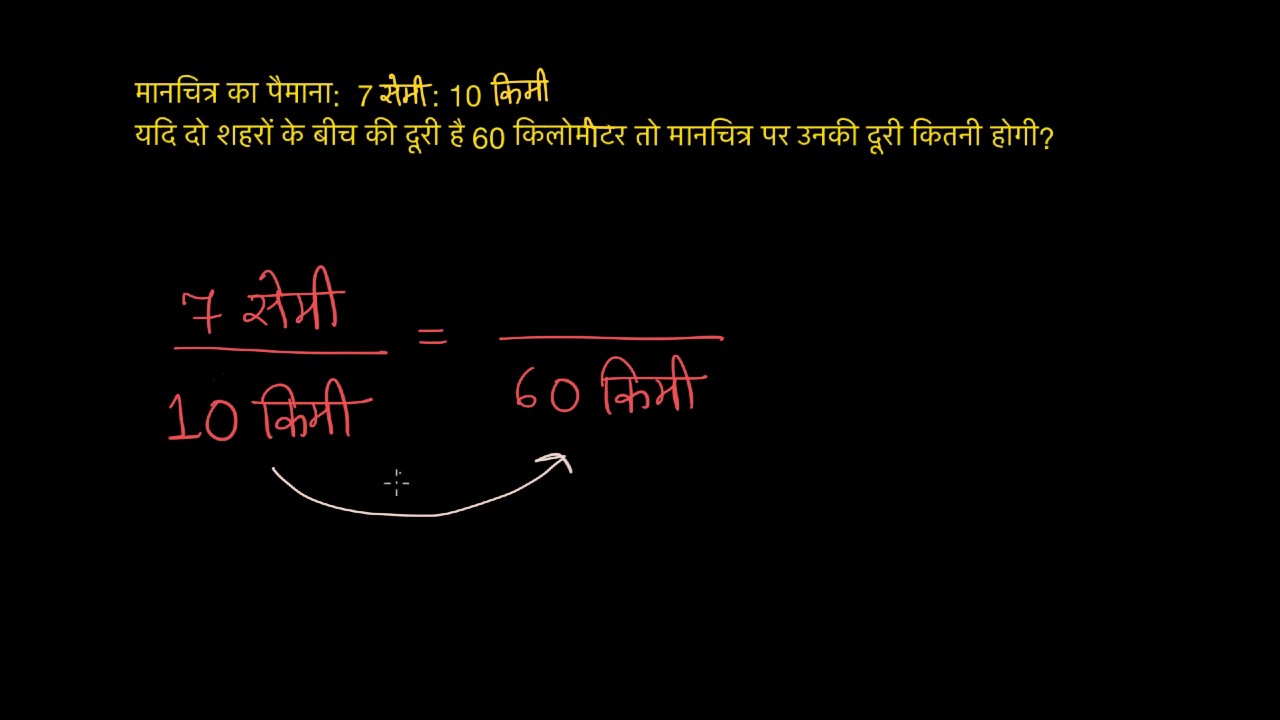 मानचित्र का पैमाना: 7 सेमी : 10 किमी
यदि दो शहरों के बीच की दूरी है 60 किलोमीटर तो मानचित्र पर उनकी दूरी कितनी होगी?
7 सेमी
=
10 किमी
60 किमी